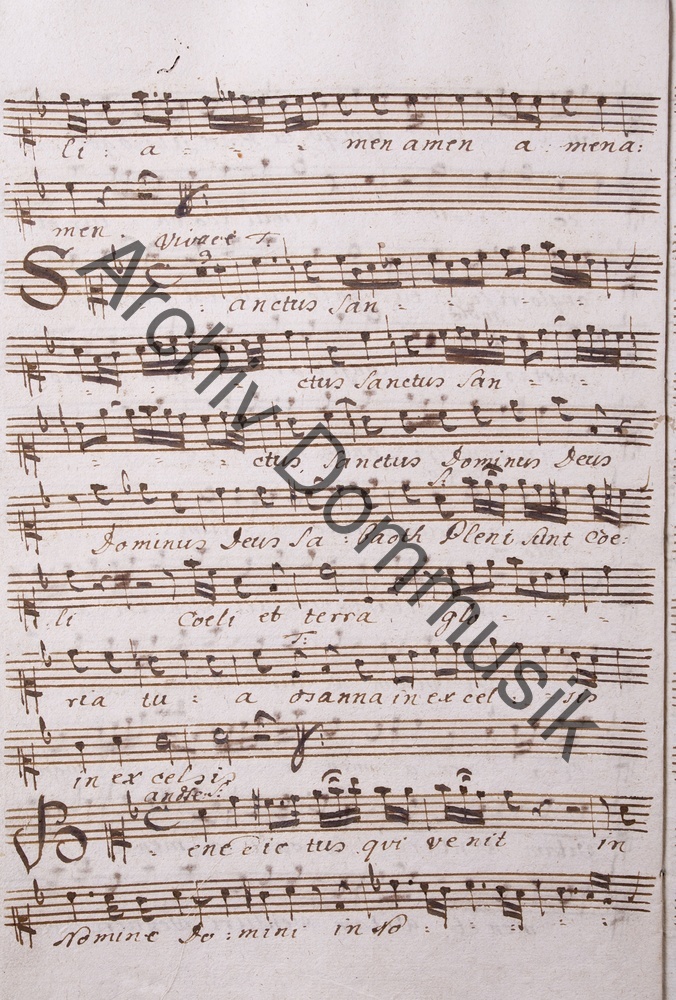 li : a - - - - men amen a : mena:
men.
Vivace T.
Sanctus San - - - -
- - - - ctus Sanctus San - -
- - - - ctus Sanctus Dominus Deus
Dominus Deus Sa : baoth Pleni sunt Coe:
li Coeli et terra glo - - - -
T.
ria tu : a osanna in ex cel : sis
in ex celsis
S:
Bene dic tus qui venit in
Nomine Do : mini in No - - - -
Archiv Dommusik